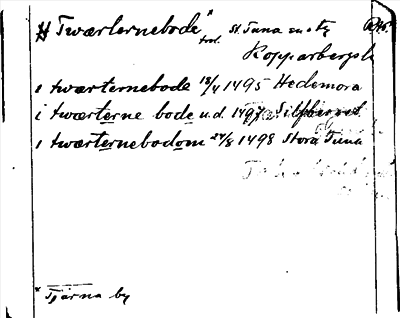 # Twærternebode* trol. St. Tuna sn
Kopparbergs l
i twærternebode 18/4 1495 Hedemora
i twærterne bode u.d. 1497 Silfberget
i twærternebodom 24/8 1498 Stora Tuna
* Tjärna by